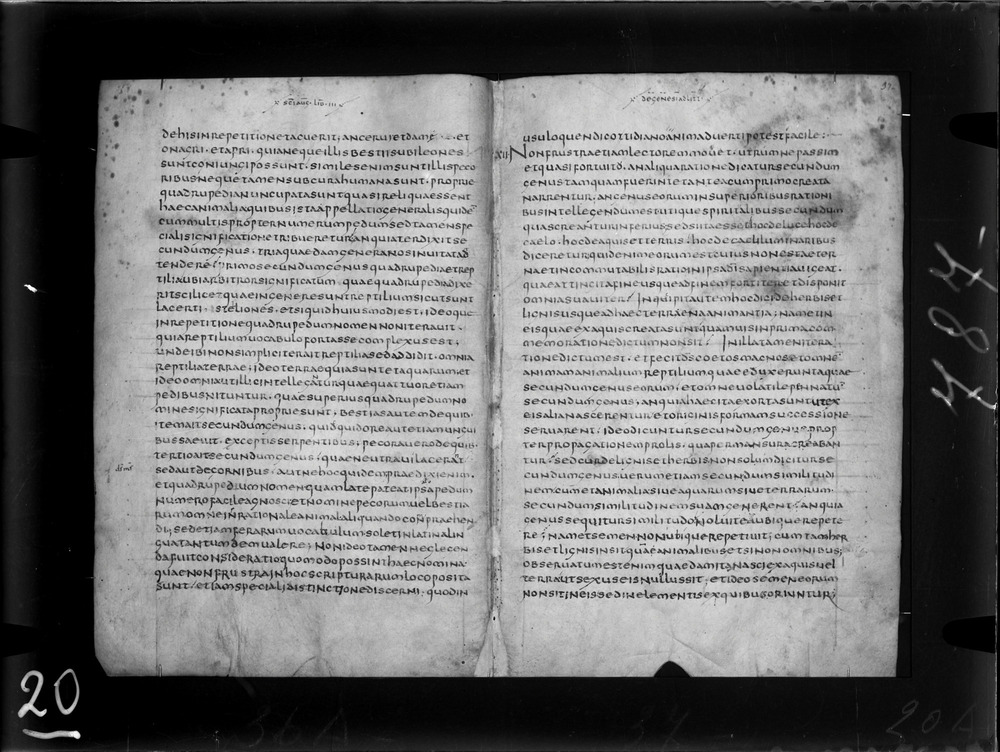 SCI AUG · LIB · III
DEHISINREPETITIONETACUERIT; ANCERUIETDAME · ET
ONACRI · ETAPRI · QUIANEQUEILLISBESTIISUBILEONES
SUNTCONIUNCIPOSSUNT; SIMILESENIMSUNTILLISPECO
RIBUSNEQUETAMENSUBCURAHUMANASUNT · PROPRIE
QUADRUPEDIANUNCUPATASUNTQUASIRELIQUAESSENT
HAECANIMALIAQUIBUSISTAAPPELLATIOGENERALISQUIDE
CUMMULTISPROPTERNUMERUMPEDUMSEDTAMENSPE
CIALISIGNIFICATIONETRIBUERETURANQUIATERDIXITSE
CUNDUMGENUS · TRIAQUAEDAMGENERANOSINUITATAD
TENDERE; PRIMOSECUNDUMGENUSQUADRUPEDIAETREP
TILIAUBIARBITRORSIGNIFICATUM · QUAEQUADRUPEDIADIXE
RITSCILICETQUAEINGENERESUNTREPTILIUMSICUTSUNT
LACERTI · STELIONES · ETSIQUIDHUIUSMODIEST · IDEOQUE
INREPETITIONEQUADRUPEDUMNOMENNONITERAUIT ·
QUIAREPTILIUMUOCABULOFORTASSECOMPLEXUSEST;
UNDEIBINONSIMPLICITERAITREPTILIASEDADDIDIT · OMNIA
REPTILIATERRAE; IDEOTERRAEQUIASUNTETAQUARUM · ET
IDEOOMNIAUTILLICINTELLEGANTURQUAEQUATTUORETIAM
PEDIBUSNITUNTUR · QUAESUPERIUSQUADRUPEDUMNO
MINESIGNIFICATAPROPRIESUNT; BESTIASAUTEMDEQUIB·
ITEMAITSECUNDUMGENUS · QUIDQUIDOREAUTETIAMUNGUI
BUSSAEUIT · EXCEPTISSERPENTIBUS; PECORAUERODEQUIB·
TERTIOAITSECUNDUMGENUS; QUAENEUTRAUILACERAT
SEDAUTDECORNIBUS · AUTNEHOCQUIDEMPRAEDIXIENIM ·
ETQUADRUPEDUMNOMENQUAMLATEPATEATIPSAPEDUM
NUMEROFACILEAGNOSCIETNOMINEPECORUMUELBESTIA
RUMOMNEINRATIONALEANIMALALIQUANDOCONPRAEHEN
DI; SEDETIAMFERARUMUOCABULUMSOLETINLATINALIN
GUATANTUMDEMUALERE; NONIDEOTAMENNEGLEGEN
DAFUITCONSIDERATIOQUOMODOPOSSINTHAECNOMINA ·
QUAENONFRUSTRAINHOCSCRIPTURARUMLOCOPOSITA
SUNT; ETIAMSPECIALIDISTINCTIONEDISCERNI · QUODIN
DE GENESI AD LITT
USULOQUENDICOTTIDIANOANIMADUERTIPOTESTFACILE;
XII NONFRUSTRAETIAMLECTOREMMOUET · UTRUMNEPASSIM
ETQUASIFORTUITO · ANALIQUARATIONEDICATURSECUNDUM
GENUSTAMQUAMFUERINTETANTEACUMPRIMOCREATA
NARRENTUR · ANGENUSEORUMINSUPERIORIBUSRATIONI
BUSINTELLEGENDUMESTUTIQUESPIRITALIBUSSECUNDUM
QUASCREANTURINFERIUSSEDSIITAESSETHOCDELUCEHOCDE
CAELO · HOCDEAQUISETTERRIS · HOCDECAELILUMINARIBUS
DICERETURQUIDENIMEORUMESTCUIUSNONESTAETER
NAETINCOMMUTABILISRATIOINIPSADISAPIENTIAUIGEAT ·
QUAEATTINGITAFINEUSQUEADFINEMFORTITERETDISPONIT
OMNIASUAUITER; INQUIPITAUTEMHOCDICIDEHERBISET
LIGNISUSQUEADHAECTERRAENAANIMANTIA; NAMETIN
EISQUAEEXAQUISCREATASUNTQUAMUISINPRIMACOM
MEMORATIONEDICTUMNONSIT; INILLATAMENITERA
TIONEDICTUMEST · ETFECITDSCOETOSMAGNOSETOMNE
ANIMAMANIMALIUMREPTILIUMQUAEEDUXERUNTAQUAE
SECUNDUMGENUSEORUM; ETOMNEUOLATILEPENNATU
SECUNDUMGENUS; ANQUIAHAECITAEXORTASUNTUTEX
EISALIANASCERENTURETORIGINISFORMAMSUCCESSIONE
SERUARENT; IDEODICUNTURSECUNDUMGENUSPROP
TERPROPAGATIONEMPROLIS · QUAPERMANSURACREABAN
TUR; SEDCURDELIGNISETHERBISNONSOLUMDICITURSE
CUNDUMGENUSUERUMETIAMSECUNDUMSIMILITUDI
NEMCUMETANIMALIASIUEAQUARUMSIUETERRARUM ·
SECUNDUMSIMILITUDINEMSUAMGENERENT; ANQUIA
GENUSSEQUITURSIMILITUDONOLUITEAUBIQUEREPETE
RE; NAMETSEMENNONUBIQUEREPETIUIT; CUMTAMHER
BISETLIGNISINSITQUAEANIMALIBUSETSINONOMNIBUS;
OBSERUATUMESTENIMQUAEDAMITANASCIEXAQUISUEL
TERRAUTSEXUSEISNULLUSSIT · ETIDEOSEMENEORUM
NONSITINEISSEDINELEMENTISEXQUIBUSORIUNTUR;
20
487